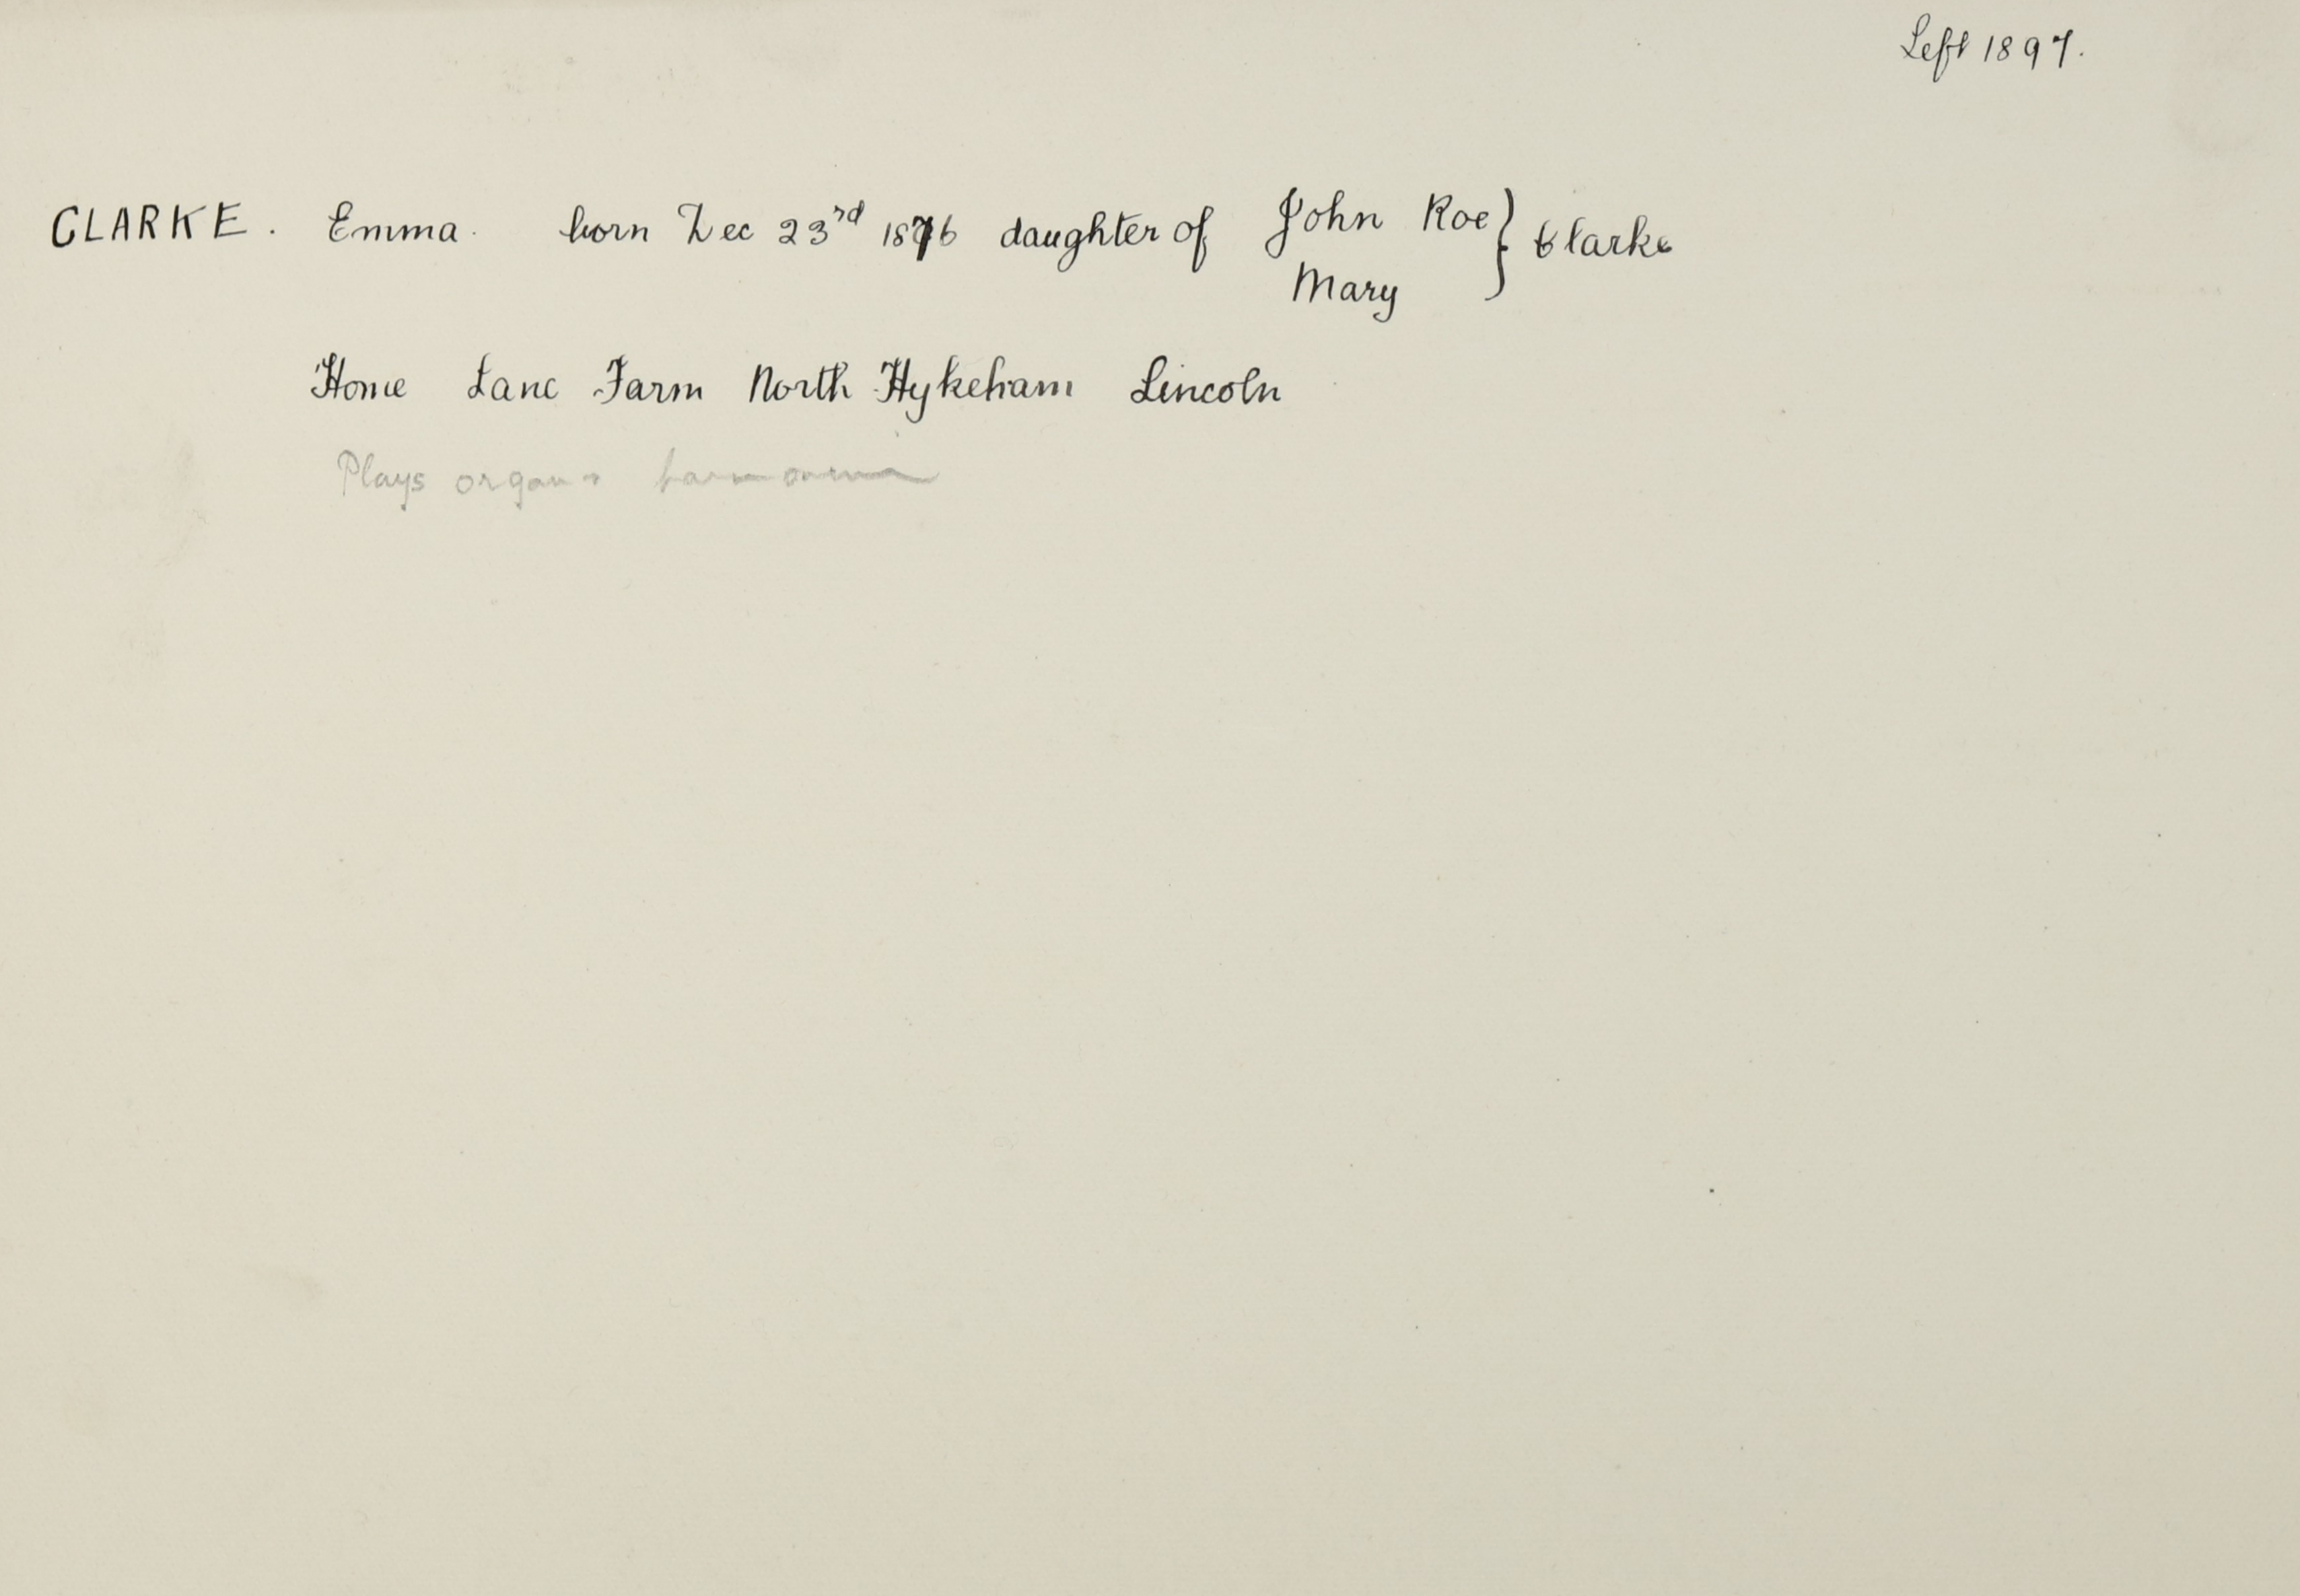 Left 1897.
CLARKE. Emma. born Dec 23rd 1876 daughter of John Roe } Clarke
Mary
Home Lane Farm North Hykeham Lincoln
Plays organ + harmonium